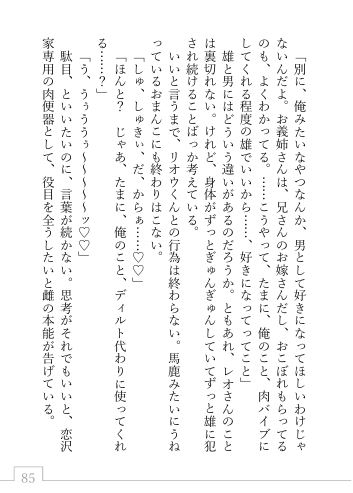 「別に、俺みたいなやつなんか、男として好きになってほしいわけじゃ
ないんだよ。お義姉さんは、兄さんのお嫁さんだし、おこぼれもらってる
のも、よくわかってる。……こうやって、たまに、俺のこと、肉バイブに
してくれる程度の雄でいいから……、好きになってってこと」
雄と男にはどういう違いがあるのだろうか。ともあれ、レオさんのこと
は裏切れない。けれど、身体がずっとぎゅんぎゅんしていてずっと雄に犯
され続けることばっか考えている。
いいと言うまで、リオウくんとの行為は終わらない。馬鹿みたいにうね
っているおまんこにも終わりはこない。
「しゅ、しゅきぃ、だ、からぁ……♡♡」
「ほんと？　じゃあ、たまに、俺のこと、ディルト代わりに使ってくれ
る……？」
「う、うぅううぅ～～～～～ッ♡♡」
駄目、といいたいのに、言葉が続かない。思考がそれでもいいと、恋沢
家専用の肉便器として、役目を全うしたいと雌の本能が告げている。
85